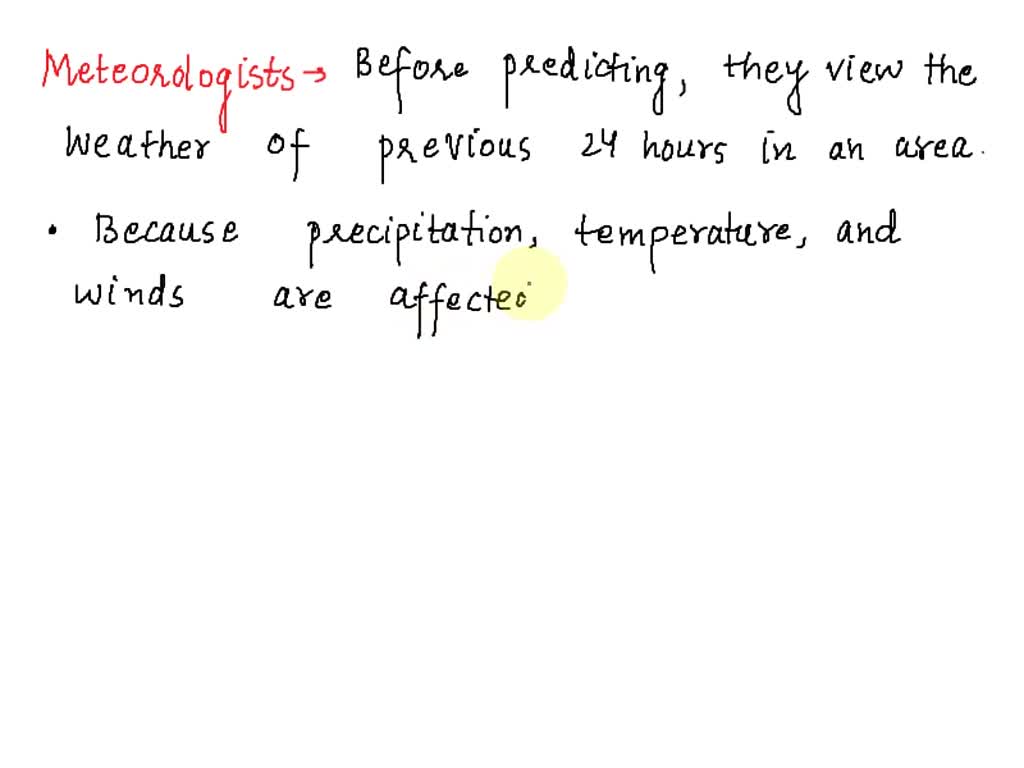 Meteorologists → Before predicting, they view the
weather of previous 24 hours in an area.
• Because precipitation, temperature, and
winds are affected